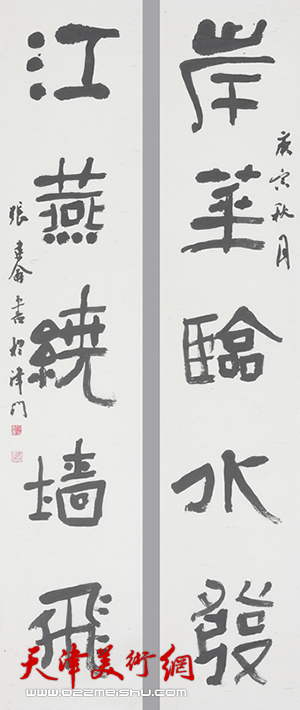 庚寅秋月
岸華臨水發
江燕繞墙飛
張建會書於津門
天津美術網
www.022meishu.com